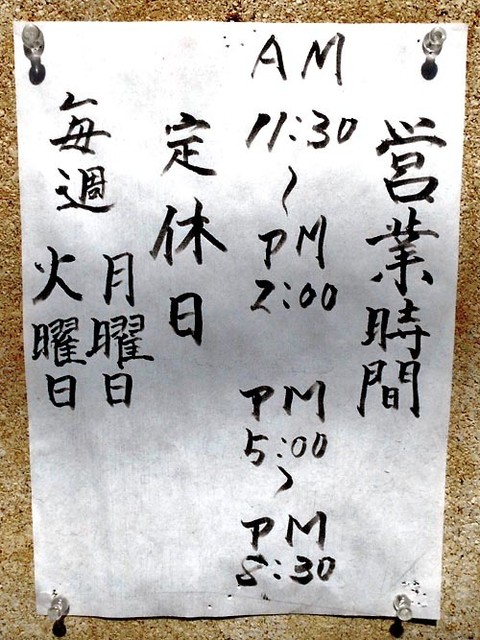 営業時間
AM
11:30
〜
PM
2:00
PM
5:00
〜
PM
8:30
定休日
毎週
月曜日
火曜日